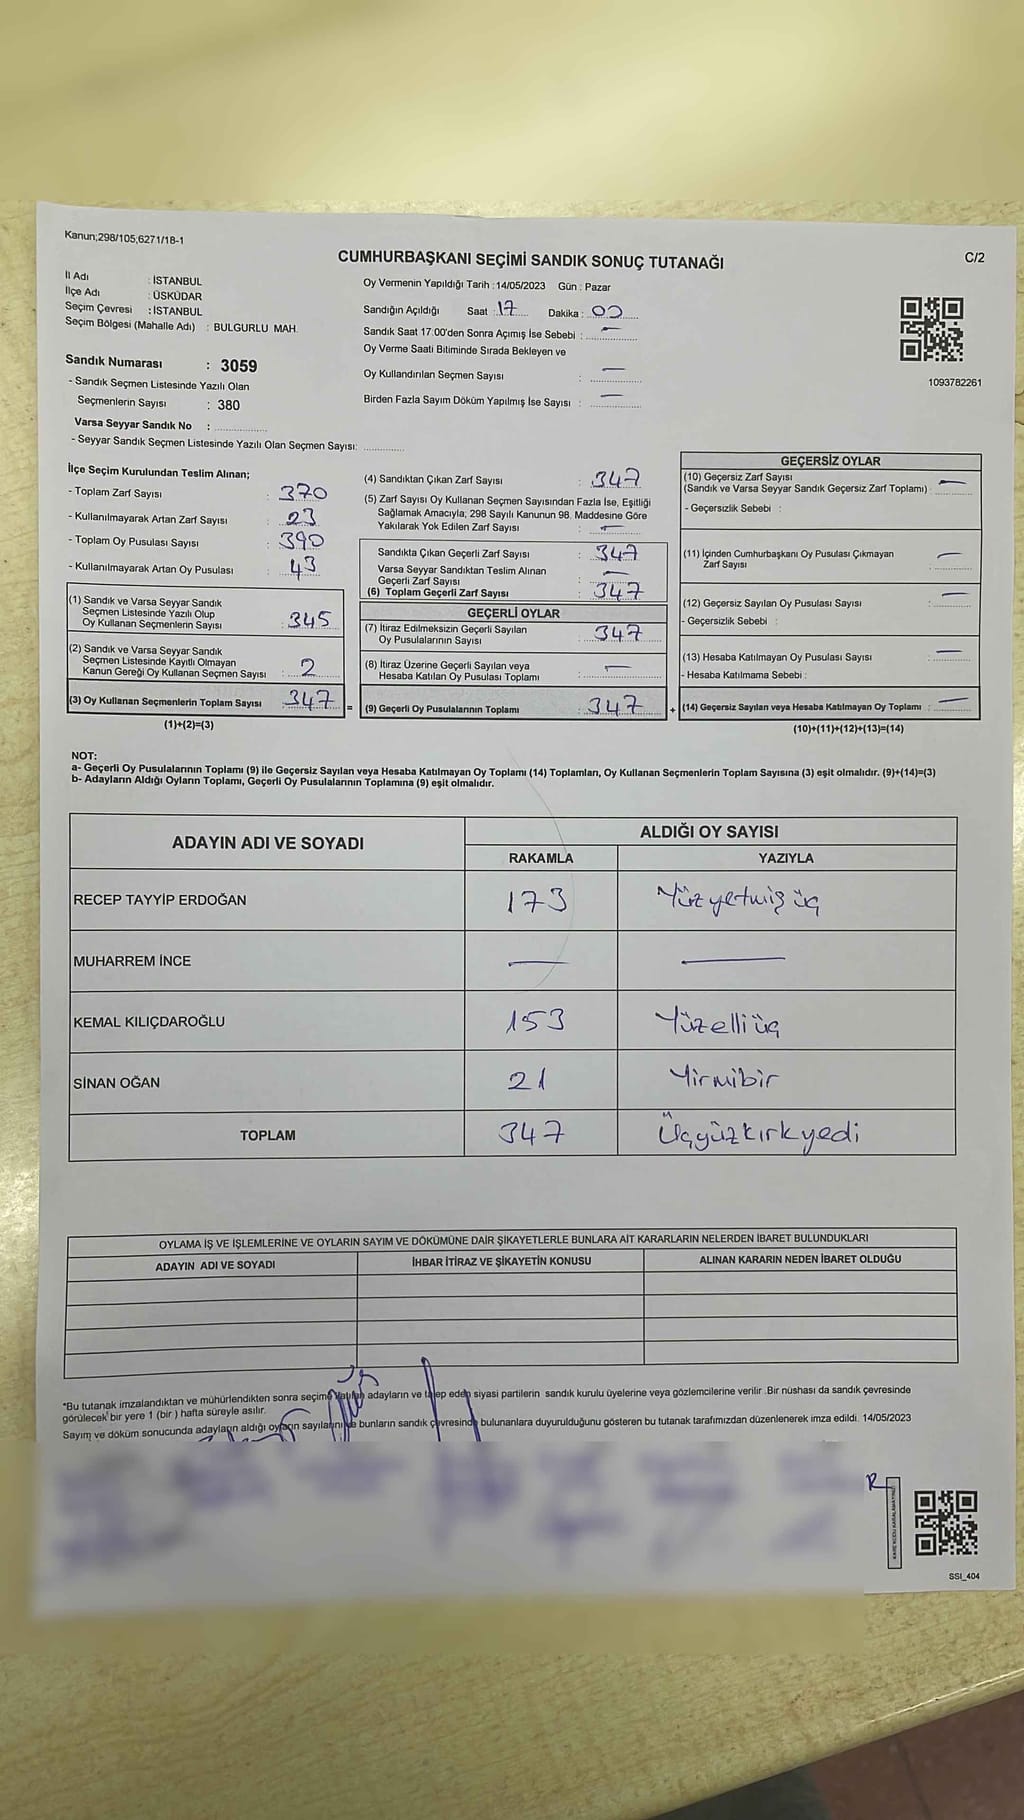 Kanun;298/105;6271/18-1
C/2
CUMHURBAŞKANI SEÇİMİ SANDIK SONUÇ TUTANAĞI
İl Adı : İSTANBUL
İlçe Adı : ÜSKÜDAR
Seçim Çevresi : İSTANBUL
Seçim Bölgesi (Mahalle Adı) : BULGURLU MAH.
Sandık Numarası : 3059
- Sandık Seçmen Listesinde Yazılı Olan
Seçmenlerin Sayısı : 380
Varsa Seyyar Sandık No :
- Seyyar Sandık Seçmen Listesinde Yazılı Olan Seçmen Sayısı:
Oy Vermenin Yapıldığı Tarih :14/05/2023 Gün : Pazar
Sandığın Açıldığı Saat : 17 Dakika : 00
Sandık Saat 17:00'den Sonra Açımış İse Sebebi : —
Oy Verme Saati Bitiminde Sırada Bekleyen ve
Oy Kullandırılan Seçmen Sayısı : —
Birden Fazla Sayım Döküm Yapılmış İse Sayısı : —
1093782261
İlçe Seçim Kurulundan Teslim Alınan;
- Toplam Zarf Sayısı : 370
- Kullanılmayarak Artan Zarf Sayısı : 23
- Toplam Oy Pusulası Sayısı : 390
- Kullanılmayarak Artan Oy Pusulası : 43
(1) Sandık ve Varsa Seyyar Sandık
Seçmen Listesinde Yazılı Olup
Oy Kullanan Seçmenlerin Sayısı : 345
(2) Sandık ve Varsa Seyyar Sandık
Seçmen Listesinde Kayıtlı Olmayan
Kanun Gereği Oy Kullanan Seçmen Sayısı : 2
(3) Oy Kullanan Seçmenlerin Toplam Sayısı : 347
(1)+(2)=(3)
(4) Sandıktan Çıkan Zarf Sayısı : 347
(5) Zarf Sayısı Oy Kullanan Seçmen Sayısından Fazla İse, Eşitliği
Sağlamak Amacıyla, 298 Sayılı Kanunun 98. Maddesine Göre
Yakılarak Yok Edilen Zarf Sayısı : —
Sandıkta Çıkan Geçerli Zarf Sayısı : 347
Varsa Seyyar Sandıktan Teslim Alınan
Geçerli Zarf Sayısı : —
(6) Toplam Geçerli Zarf Sayısı : 347
GEÇERLİ OYLAR
(7) İtiraz Edilmeksizin Geçerli Sayılan
Oy Pusulalarının Sayısı : 347
(8) İtiraz Üzerine Geçerli Sayılan veya
Hesaba Katılan Oy Pusulası Toplamı : —
= (9) Geçerli Oy Pusulalarının Toplamı : 347
GEÇERSİZ OYLAR
(10) Geçersiz Zarf Sayısı
(Sandık ve Varsa Seyyar Sandık Geçersiz Zarf Toplamı) : —
- Geçersizlik Sebebi :
(11) İçinden Cumhurbaşkanı Oy Pusulası Çıkmayan
Zarf Sayısı : —
(12) Geçersiz Sayılan Oy Pusulası Sayısı : —
- Geçersizlik Sebebi :
(13) Hesaba Katılmayan Oy Pusulası Sayısı : —
- Hesaba Katılmama Sebebi :
+ (14) Geçersiz Sayılan veya Hesaba Katılmayan Oy Toplamı : —
(10)+(11)+(12)+(13)=(14)
NOT:
a- Geçerli Oy Pusulalarının Toplamı (9) ile Geçersiz Sayılan veya Hesaba Katılmayan Oy Toplamı (14) Toplamları, Oy Kullanan Seçmenlerin Toplam Sayısına (3) eşit olmalıdır. (9)+(14)=(3)
b- Adayların Aldığı Oyların Toplamı, Geçerli Oy Pusulalarının Toplamına (9) eşit olmalıdır.
ADAYIN ADI VE SOYADI ALDIĞI OY SAYISI
RAKAMLA YAZIYLA
RECEP TAYYİP ERDOĞAN 173 Yüzyetmiş üç
MUHARREM İNCE — —
KEMAL KILIÇDAROĞLU 153 Yüzelliüç
SİNAN OĞAN 21 Yirmibir
TOPLAM 347 Üçyüzkırkyedi
OYLAMA İŞ VE İŞLEMLERİNE VE OYLARIN SAYIM VE DÖKÜMÜNE DAİR ŞİKAYETLERLE BUNLARA AİT KARARLARIN NELERDEN İBARET BULUNDUKLARI
ADAYIN ADI VE SOYADI İHBAR İTİRAZ VE ŞİKAYETİN KONUSU ALINAN KARARIN NEDEN İBARET OLDUĞU
*Bu tutanak imzalandıktan ve mühürlendikten sonra seçime katılan adayların ve talep eden siyasi partilerin sandık kurulu üyelerine veya gözlemcilerine verilir .Bir nüshası da sandık çevresinde
görülecek bir yere 1 (bir ) hafta süreyle asılır.
Sayım ve döküm sonucunda adayların aldığı oyların sayılarını ve bunların sandık çevresinde bulunanlara duyurulduğunu gösteren bu tutanak tarafımızdan düzenlenerek imza edildi. 14/05/2023
SSI_404